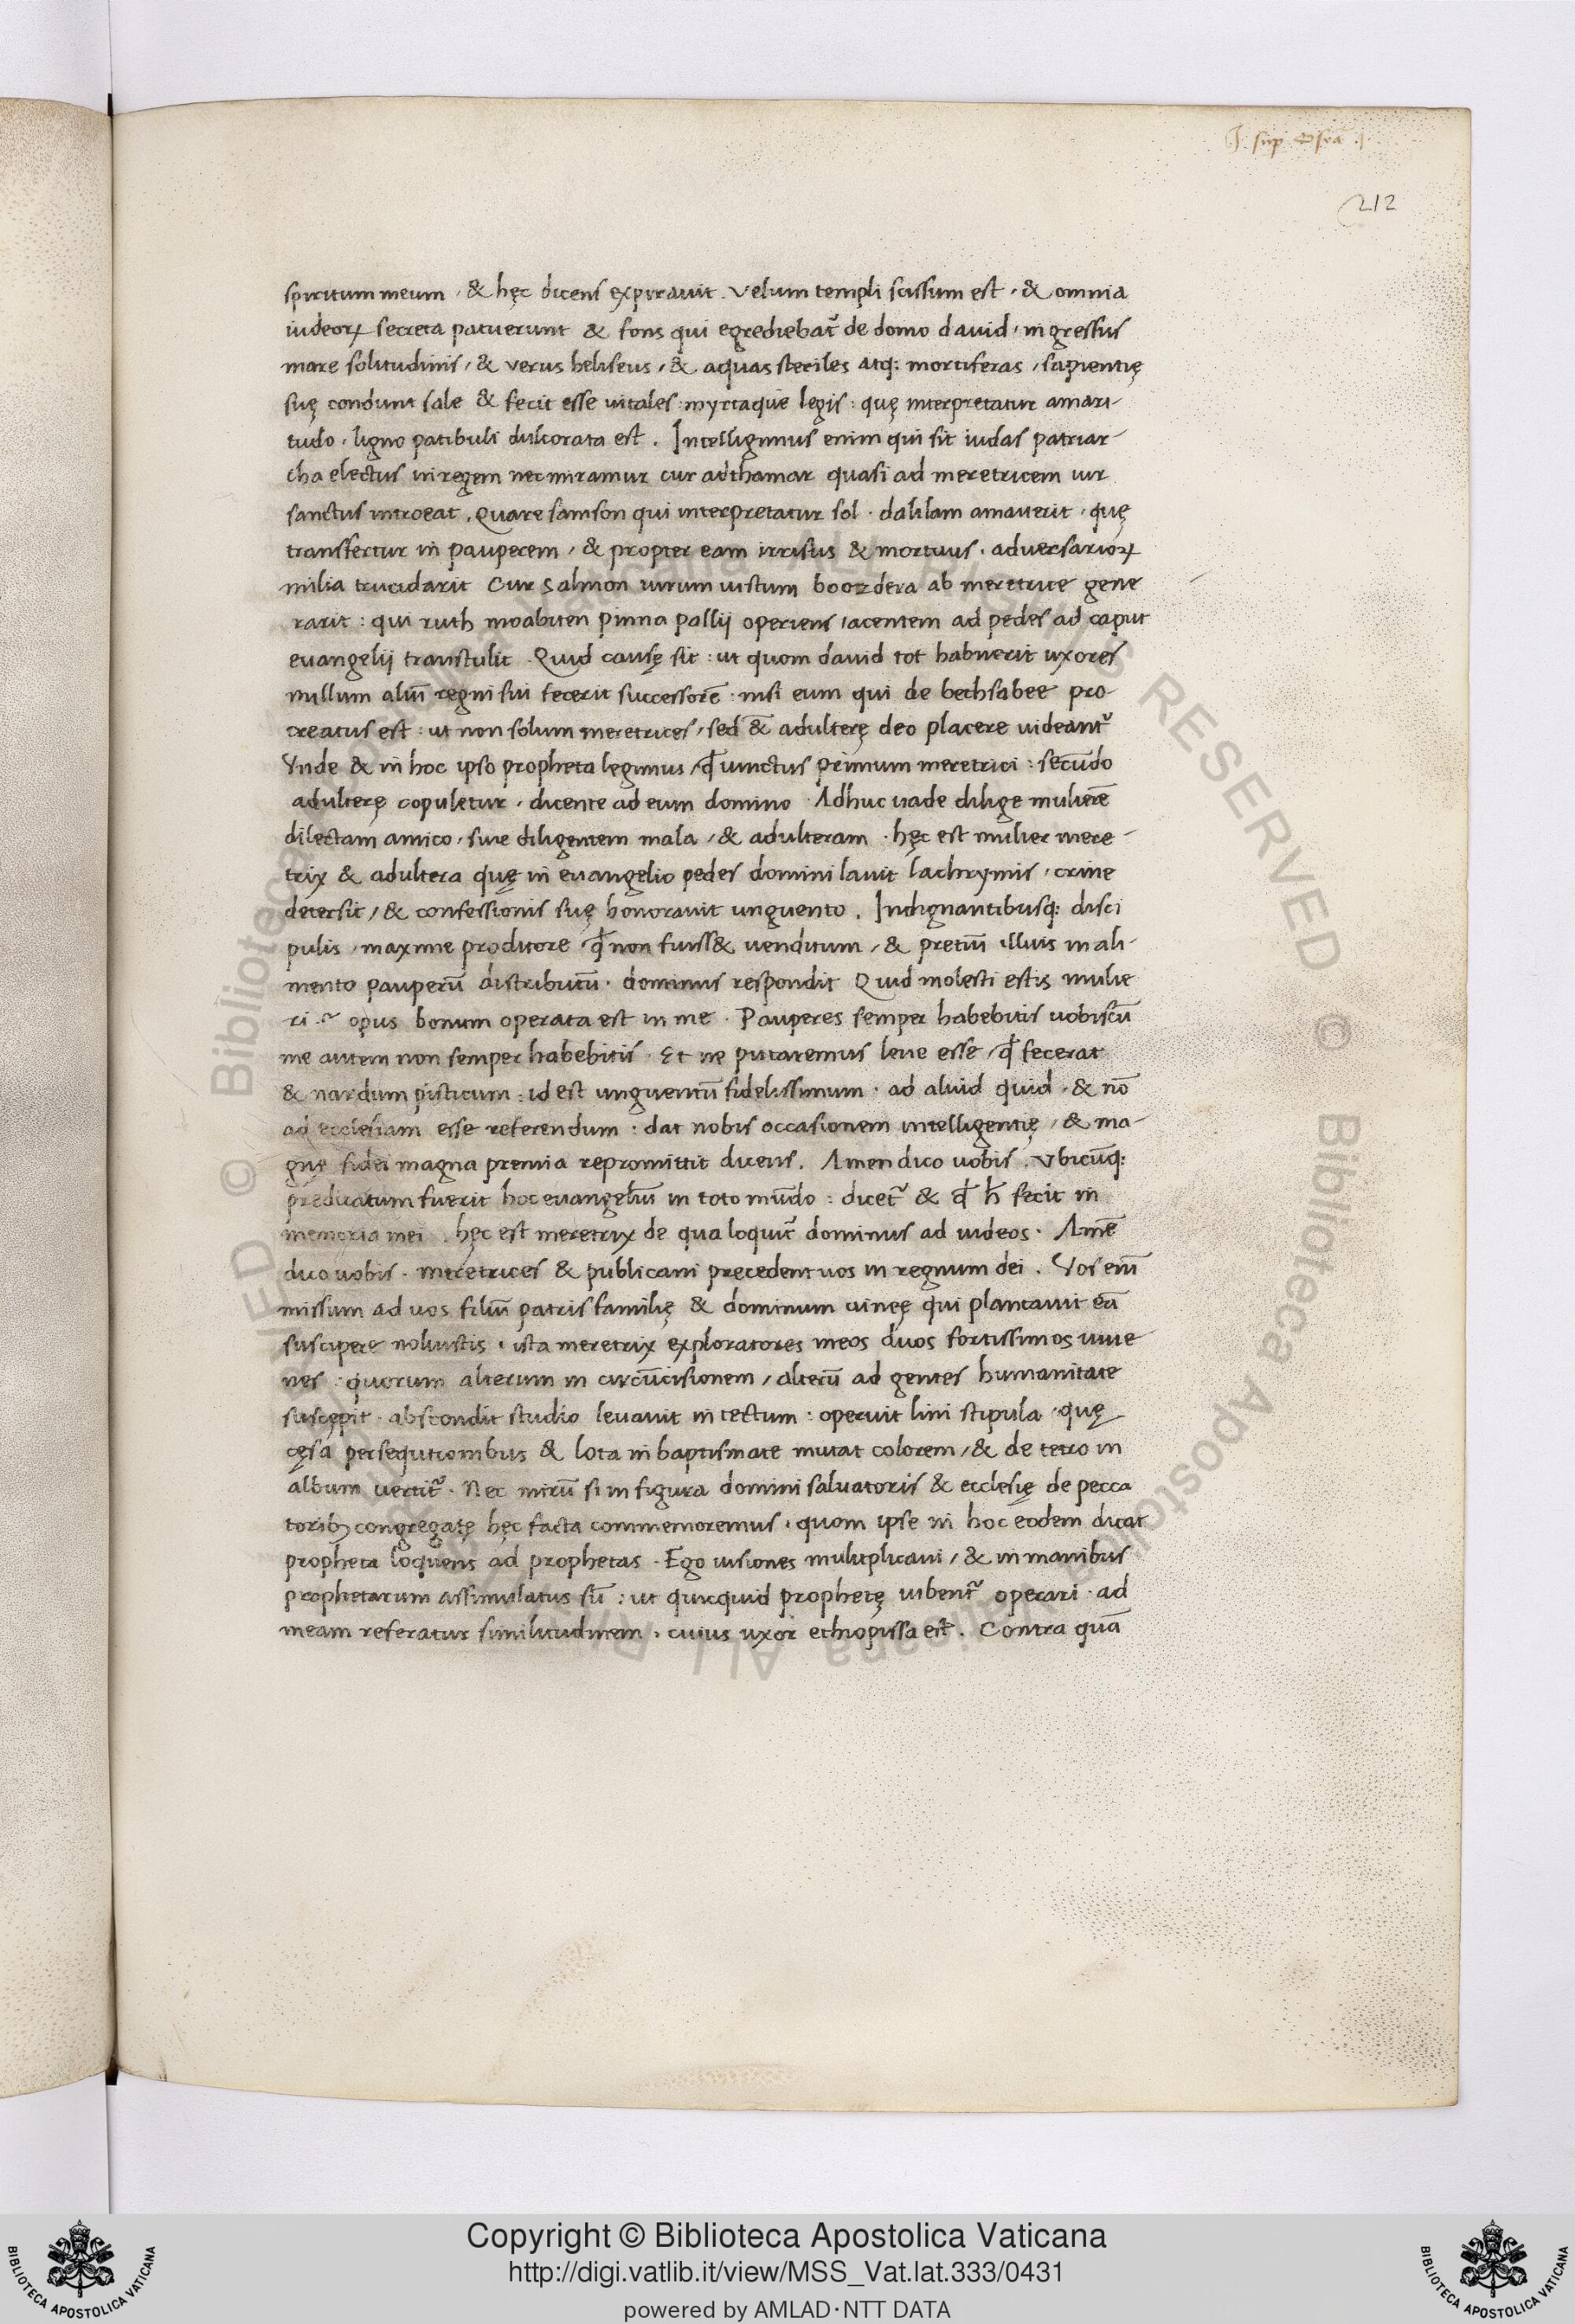 J. sup Oseā .j.
212
spiritum meum, & hęc dicens expirauit. Velum templi scissum est, & omnia
iudeoꝝ secreta patuerunt & fons qui egrediebat᷑ de domo dauid, ingressus
mare solitudinis, & verus heliseus, & aquas steriles atq: mortiferas, sapientię
suę condunt sale & fecit esse uitales: myrtaque legis: quę interpretatur amari-
tudo, ligno patibuli dulcorata est. Intelligimus enim qui sit iudas patriar-
cha electus in regem nec miramur cur ad thamar quasi ad meretricem uir
sanctus introeat. Quare samson qui interpretatur sol. dalilam amauerit, quę
transfertur in pauperem, & propter eam irrisus & mortuus, aduersarioꝝ
milia trucidarit Cur Salmon uirum iustum booz dera ab meretrice gene
rarit: qui ruth moabiten pinna pallij operiens, iacentem ad pedes ad caput
euangelij transtulit. Quid causę sit: ut quom dauid tot habuerit uxores
nullum aliū regni sui fecerit successorē. nisi eum qui de bethsabee pro-
creatus est: ut non solum meretrices, sed & adulterę deo placere uideant᷑
Vnde & in hoc ipso propheta legimus, qđ iunctus primum meretrici: secūdo
adulterę copuletur, dicente ad eum domino. Adhuc uade dilige mulierē
dilectam amico, siue diligentem mala, & adulteram. hęc est mulier mere-
trix & adultera quę in euangelio pedes domini lauit lachrymis, crine
detersit, & confessionis suę honorauit unguento. Indignantibusq: disci
pulis, maxime proditore, qđ non fuiss& uenditum, & pretiū illius in ali-
mento pauperū distributū. dominus respondit Quid molesti estis mulie
ri.? opus bonum operata est in me. Pauperes semper habebitis uobiscū
me autem non semper habebitis. Et ne putaremus leue esse, qđ fecerat
& nardum pisticum: id est unguentū fidelissimum. ad aliud quid, & nō
ad ecclesiam esse referendum: dat nobis occasionem intelligentię, & ma-
gnę fidei magna premia repromittit dicens. Amen dico uobis. Vbicūq:
predicatum fuerit hoc euangeliū in toto mūdo: dicet᷑ & qđ h̄ fecit in
memoria mei. hęc est meretrix de qua loquit᷑ dominus ad iudeos. Amē
dico uobis. meretrices & publicani precedent uos in regnum dei. Vos eniī
missum ad uos filiū patris familię & dominum uineę qui plantauit eā
suscipere noluistis, ista meretrix exploratores meos duos fortissimos iuue
nes: quorum alterum in circūcisionem, alterū ad gentes humanitate
suscępit. abscondit studio leuauit in tectum: operuit lini stipula, quę
cęsa persequtionibus & lota in baptismate mutat colorem, & de tetro in
album uertit᷑. Nec mirū si in figura domini saluatoris & ecclesię de pecca
toribꝫ congregatę hęc facta commemoremus, quom ipse in hoc eodem dicat
propheta loquens ad prophetas. Ego uisiones multiplicaui, & in manibus
prophetarum assimulatus sū: ut quicquid prophetę iubent᷑ operari. ad
meam referatur similitudinem, cuius uxor ethiopissa est. Contra quā
© Biblioteca Apostolica Vaticana ALL RIGHTS RESERVED
Copyright © Biblioteca Apostolica Vaticana
http://digi.vatlib.it/view/MSS_Vat.lat.333/0431
powered by AMLAD·NTT DATA
BIBLIOTECA APOSTOLICA VATICANA
BIBLIOTECA APOSTOLICA VATICANA